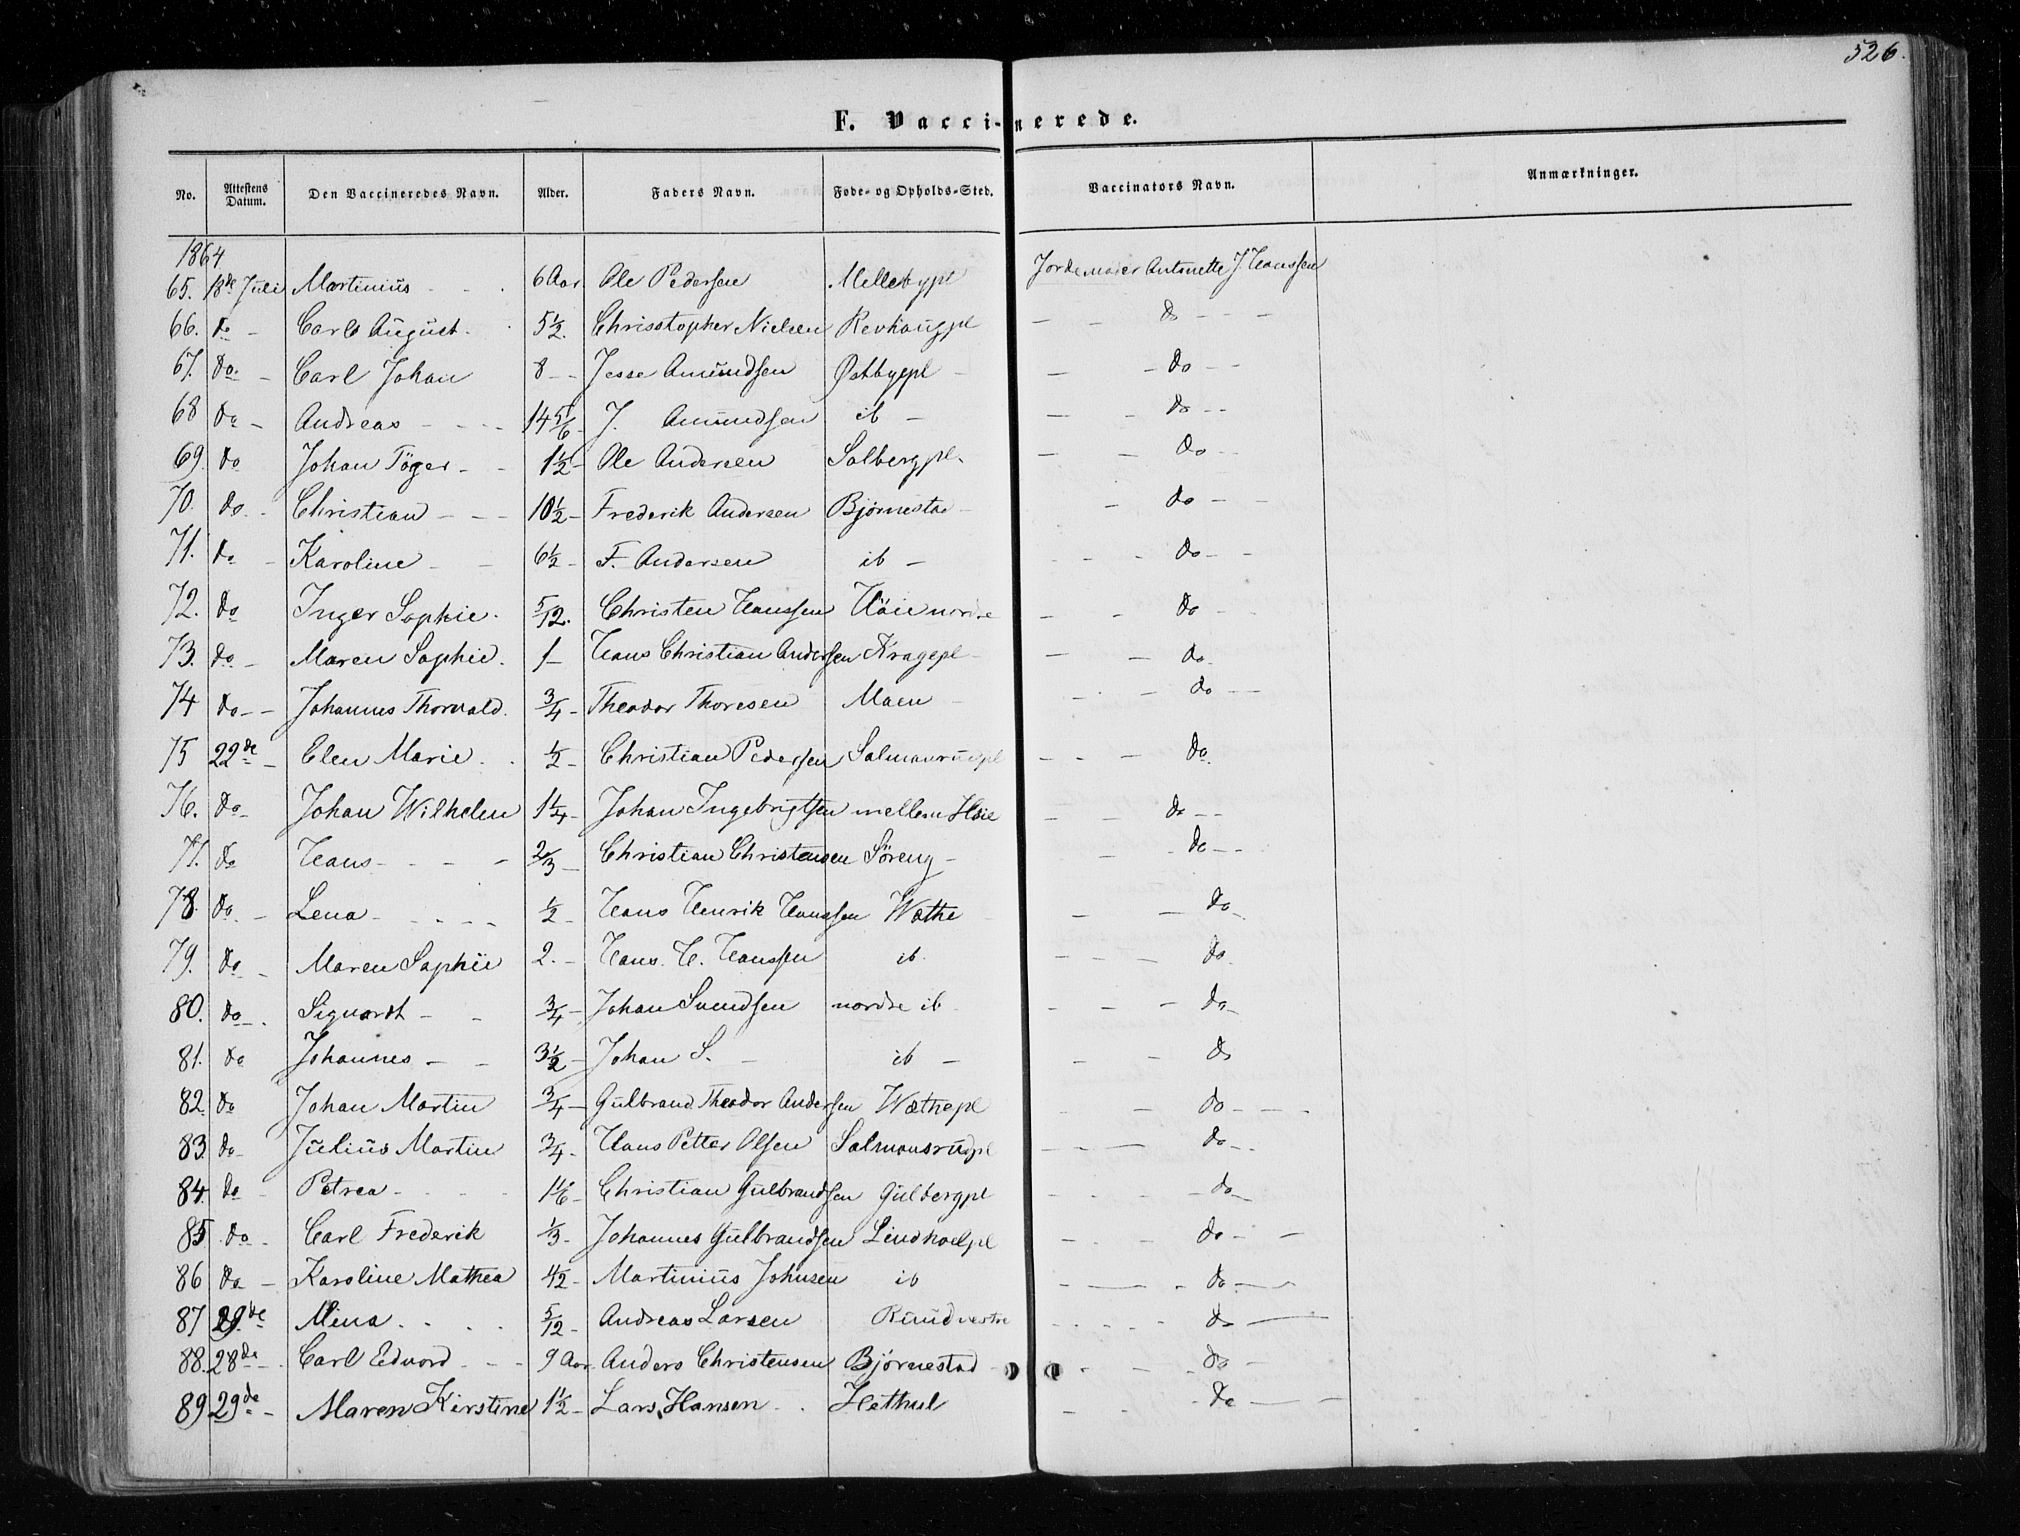 526.
F. Vaccinerede.
No. Attestens Datum. Den Vaccineredes Navn. Alder. Faders Navn. Føde- og Opholds-Sted. Vaccinators Navn. Anmærkninger.
1864
65. 18de Juli Martinius - - 6 Aar Ole Pedersen Mellebypl Jordemoder Antonette J Hanssen
66. do - Carl August. 5 1/2. Chrisstopher Nielsen Revhaugpl - - do - - -
67. do. - Carl Johan 8 - - Jesse Amundsen Østbypl - - - do - -
68 do - Andreas - - - - 14 5/6 J. Amundsen ib - - - do - -
69. do Johan Töger - - 1 1/2 - Ole Andersen Solbergpl. - - do - -
70. do. - Christian - - - 10 1/2 - Frederik Andersen Bjørnestad - - do - -
71. do - Karoline - - 6 1/2 - F. Andersen ib - - - do - -
72. do Inger Sophie. 5/12. Christen Hanssen Höie nordre - - do - -
73. do - Maren Sophie. 1 - Hans Christian Andersen Kragepl - - - do -
74 do - - Johannes Thorvald. 3/4 - Theodor Thoresen Moen - - - - do - -
75 22de - Elen Marie - . 1/2 - Christian Pedersen Salmonrudpl - - - do.
76. do - Johan Wilhelm 1 1/4 - Johan Ingebrigtsen mellem Høie - - do - -
77. do Hans - - - - 2/3 - Christian Christensen Söreng - - - do - -
78. do. - Lena - - - - 1/2 - Hans Henrik Hanssen Wathe - - - do -
79. do - Maren Sophie 2. - Hans. H. Hanssen ib. - - - do
80. do - . Sigvardt - - 3/4 - Johan Svendsen nordre ib - - - do -
81. do Johannes - - 3 1/2 - Johan S. - ib - - - do
82. do Johan Martin 3/4 - Gulbrand Theodor Andersen Wathepl - - do - - -
83. do - Julius Martin 3/4 - Hans Petter Olsen Salmonsrudpl - - - do - -
84. do - Petrea - - - - 1 1/6 - Christian Gulbrandsen Gulbergpl - - - do -
85 do - Carl Frederik 1/3 - Johannes Gulbrandsen Lindhoelpl - - - do - -
86 do - Karoline Mathea 4 1/2 - Martinius Johnsen ib - - - do -
87 29de Mina . . . . 5/12 - Andreas Larsen Ruud vestre - - - - do -
88. 28de - . Carl Edvard - - - 9 Aar. Anders Christensen Bjørnestad - - - do -
89 29de - Maren Kirstine 1 1/2 - Lars Hansen - . Hethul - - do - -